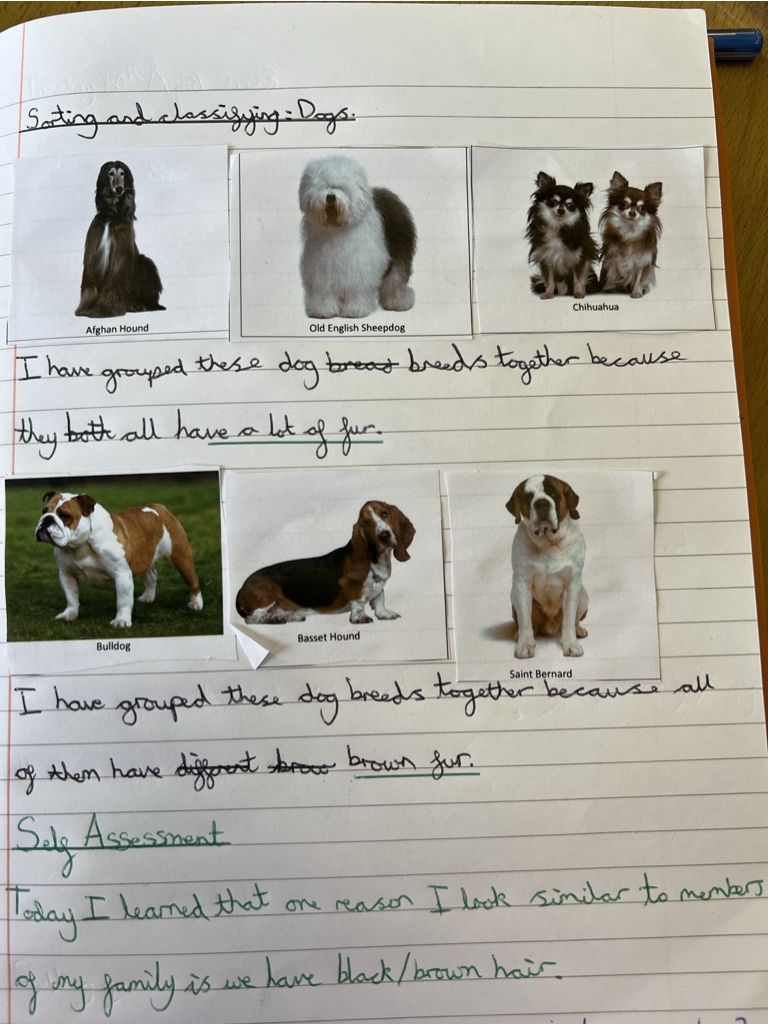 Sorting and classifying: Dogs.
Afghan Hound
Old English Sheepdog
Chihuahua
I have grouped these dog breas breeds together because
they both all have a lot of fur.
Bulldog
Basset Hound
Saint Bernard
I have grouped these dog breeds together because all
of them have different brow brown fur.
Self Assessment
Today I learned that one reason I look similar to members
of my family is we have black/brown hair.